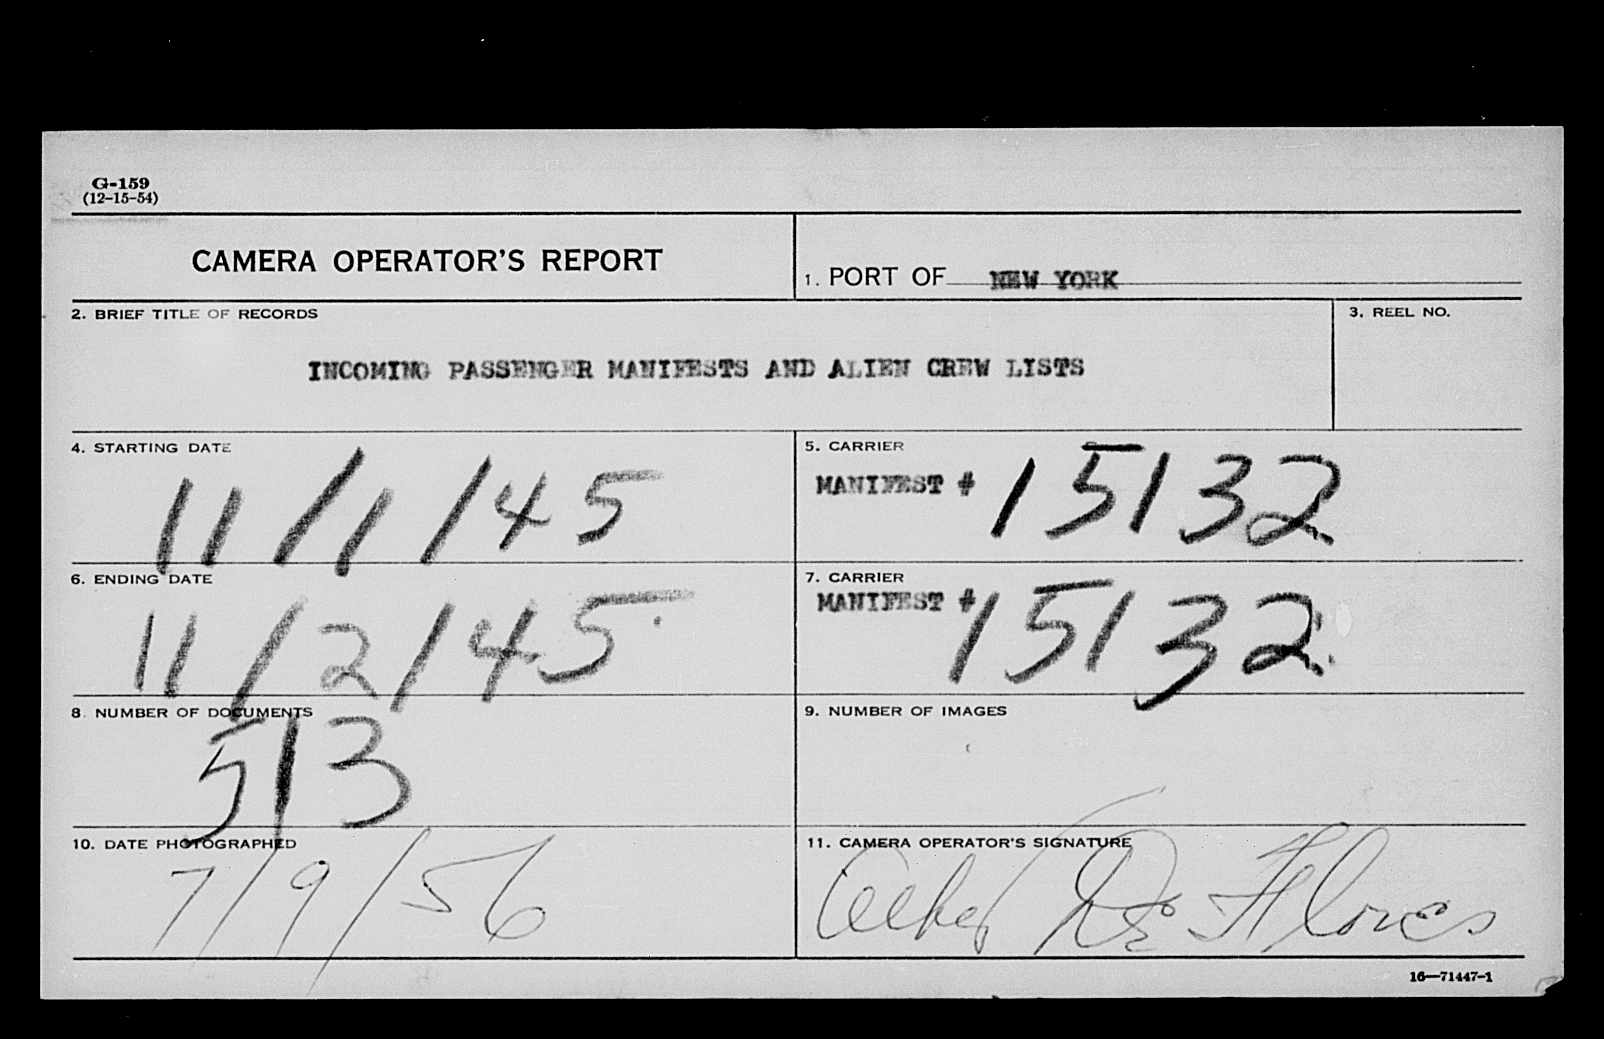 G-159
(12-15-54)
CAMERA OPERATOR'S REPORT
1. PORT OF NEW YORK
2. BRIEF TITLE OF RECORDS
3. REEL NO.
INCOMING PASSENGER MANIFESTS AND ALIEN CREW LISTS
4. STARTING DATE
11/1/45
5. CARRIER
MANIFEST # 15132
6. ENDING DATE
11/2/45
7. CARRIER
MANIFEST # 15132
8. NUMBER OF DOCUMENTS
513
9. NUMBER OF IMAGES
10. DATE PHOTOGRAPHED
7/9/56
11. CAMERA OPERATOR'S SIGNATURE
De Flores
16—71447-1